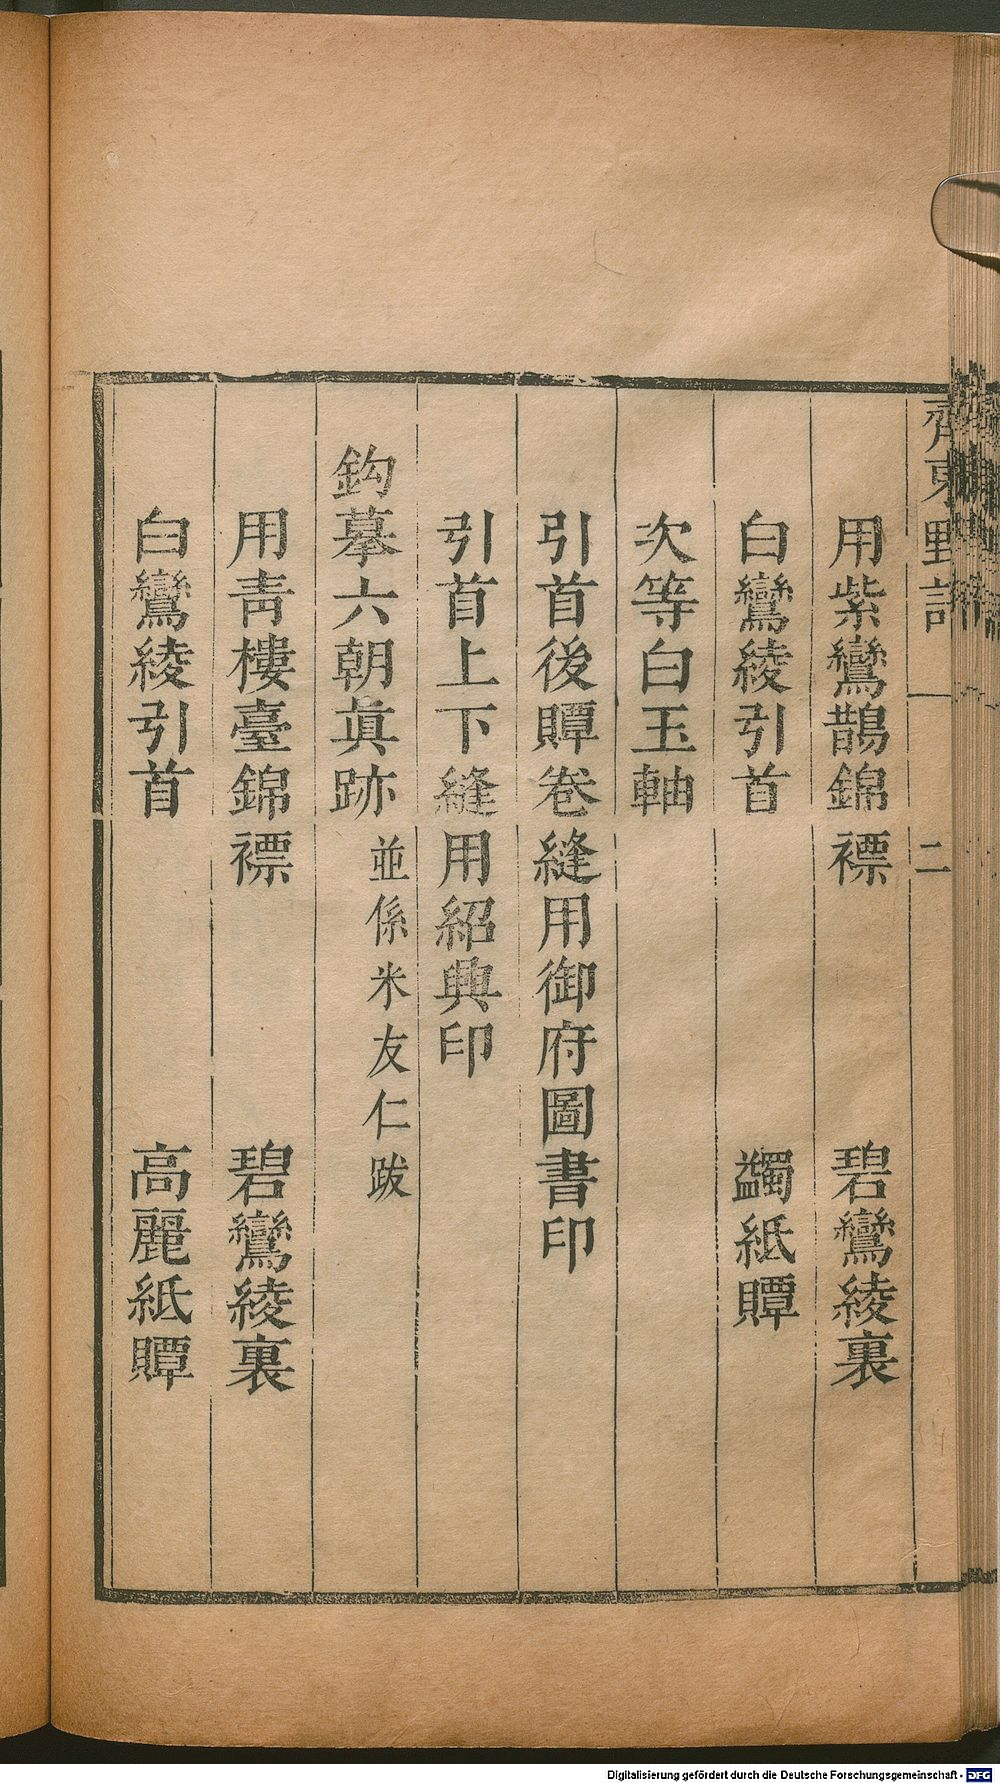 齊東野語
二
用紫鸞鵲錦褾　碧鸞綾裏
白鸞綾引首　蠲紙贉
次等白玉軸
引首後贉卷縫用御府圖書印
引首上下縫用紹興印
鈎摹六朝眞跡 並係米友仁跋
用青樓臺錦褾　碧鸞綾裏
白鸞綾引首　高麗紙贉
Digitalisierung gefördert durch die Deutsche Forschungsgemeinschaft - DFG